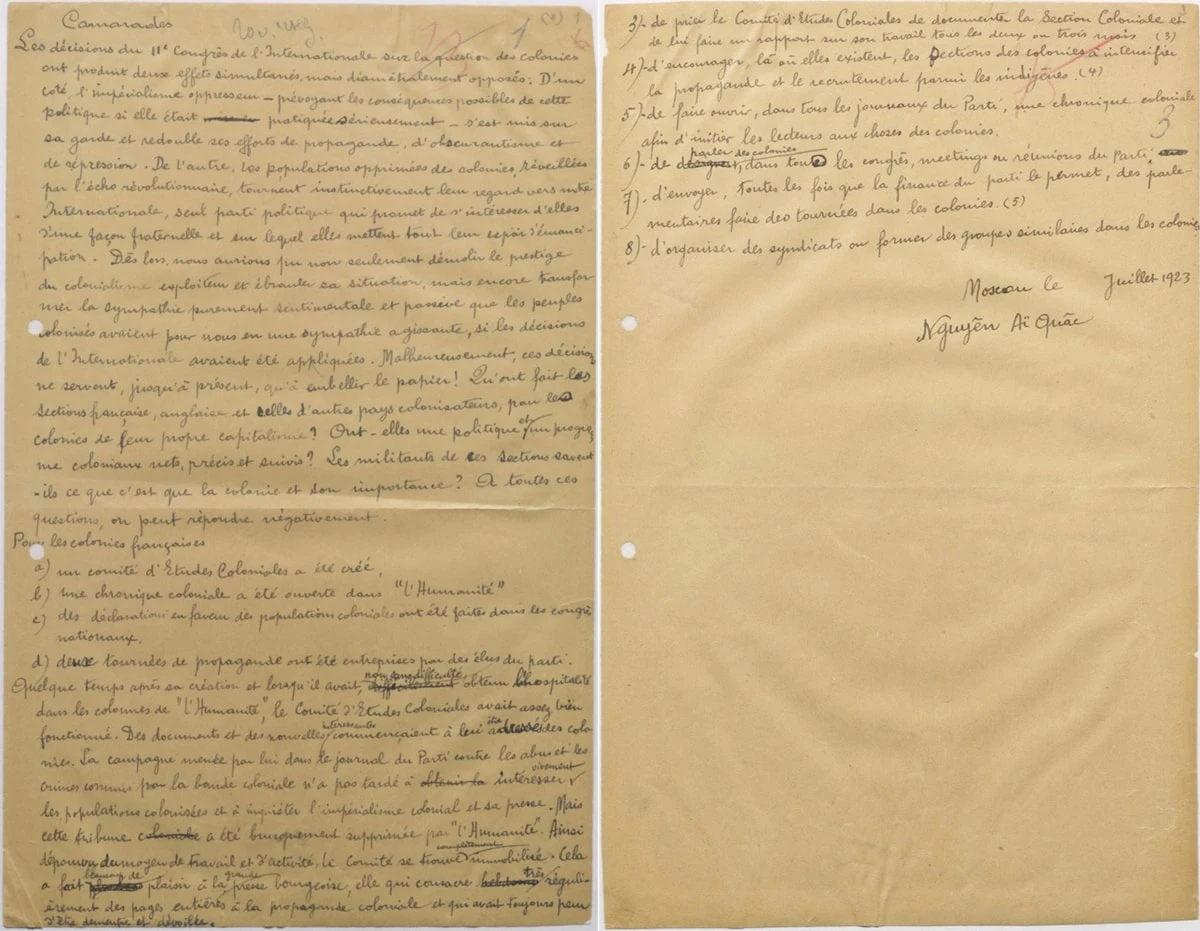 Camarades
Nov. 1923.
(1)
1
Les décisions du IIe Congrès de l'Internationale sur la question des colonies
ont produit deux effets simultanés, mais diamétralement opposés: D'un
coté, l'impérialisme oppresseur — prévoyant les conséquences possibles de cette
politique si elle était pratiquée sérieusement — s'est mis sur
sa garde et redouble ses efforts de propagande, d'obscurantisme et
de répression. De l'autre, les populations opprimées des colonies, réveillées
par l'écho révolutionnaire, tournent instinctivement leur regard vers notre
Internationale, seul parti politique qui promet de s'intéresser d'elles
d'une façon fraternelle et sur lequel elles mettent tout leur espoir d'émanci-
pation. Dès lors, nous aurions pu non seulement démolir le prestige
du colonialisme exploiteur et ébranler sa situation, mais encore transfor
mer la sympathie purement sentimentale et passive que les peuples
colonisés avaient pour nous en une sympathie agissante, si les décisions
de l'Internationale avaient été appliquées. Malheureusement, ces décision
ne servent, jusqu'à présent, qu'à embellir le papier! Qu'ont fait les
sections française, anglaise et celles d'autres pays colonisateurs, pour les
colonies de leur propre capitalisme? Ont-elles une politique et un progra
me coloniaux nets, précis et suivis? Les militants de ces sections savent
-ils ce que c'est que la colonie et son importance? A toutes ces
questions, on peut répondre négativement.
Pour les colonies françaises
a) un comité d'Etudes Coloniales a été créé,
b) une chronique coloniale a été ouverte dans "l'Humanité"
c) des déclarations en faveur des populations coloniales ont été faites dans les congrès
nationaux.
d) deux tournées de propagande ont été entreprises par des élus du parti.
Quelque temps après sa création et lorsqu'il avait, non sans difficulté, obtenu l'hospitalité
dans les colonnes de "l'Humanité", le Comité d'Etudes Coloniales avait assez bien
fonctionné. Des documents et des nouvelles intéressantes commençaient à lui être adressés des colo
nies. La campagne menée par lui dans le journal du Parti contre les abus et les
crimes commis par la bande coloniale n'a pas tardé à intéresser vivement
les populations colonisées et à inquiéter l'impérialisme colonial et sa presse. Mais
cette tribune a été brusquement supprimée par "l'Humanité". Ainsi
dépourvu du moyen de travail et d'activité, le Comité se trouve complètement immobilisé. Cela
a fait beaucoup de plaisir à la grande presse bourgeoise, elle qui consacre très réguli-
èrement des pages entières à la propagande coloniale et qui avait toujours peur
d'être démentie et dévoilée.
3)- de prier le Comité d'Etudes Coloniales de documenter la Section Coloniale et
de lui faire un rapport sur son travail tous les deux ou trois mois (3)
4)- d'encourager, là où elles existent, les Sections des colonies à intensifier
la propagande et le recrutement parmi les indigènes. (4)
5)- de faire ouvrir, dans tous les journaux du Parti, une chronique coloniale
afin d'initier les lecteurs aux choses des colonies.
3
6)- de parler des colonies, dans tous les congrès, meetings ou réunions du Parti.
7)- d'envoyer, toutes les fois que la finance du parti le permet, des parle-
mentaires faire des tournées dans les colonies. (5)
8)- d'organiser des syndicats ou former des groupes similaires dans les colonies
Moscou le Juillet 1923
Nguyên Aï Quâc